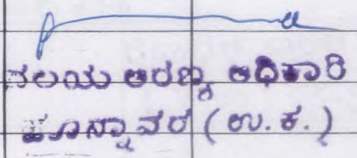 ವಲಯ ಅರಣ್ಯ ಅಧಿಕಾರಿ
ಹೊನ್ನಾವರ (ಉ.ಕ.)